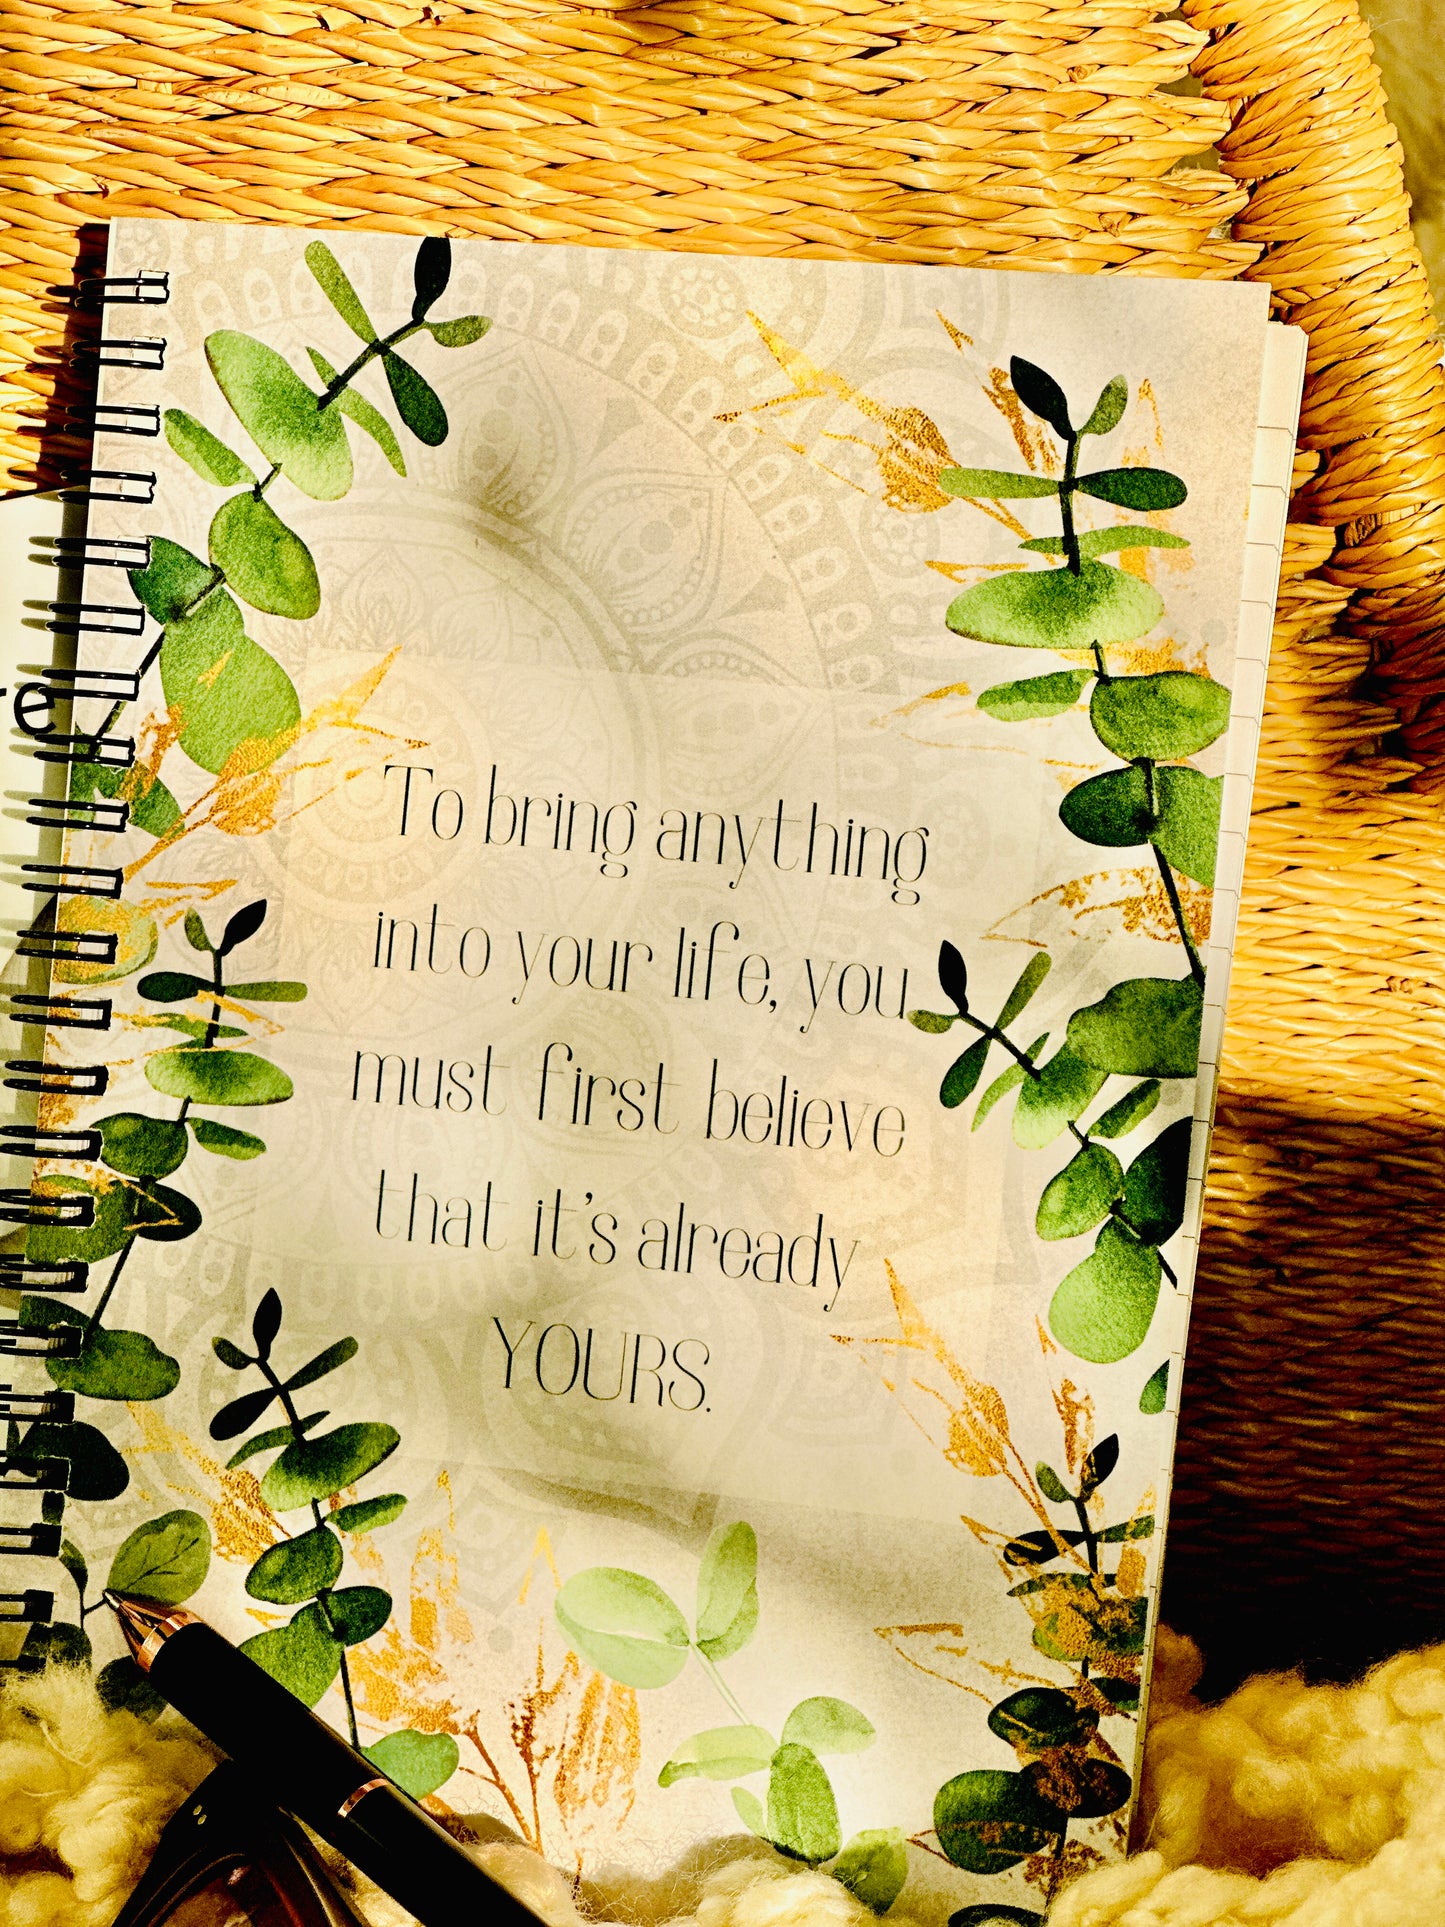 To bring anything
into your life, you
must first believe
that it's already
YOURS.